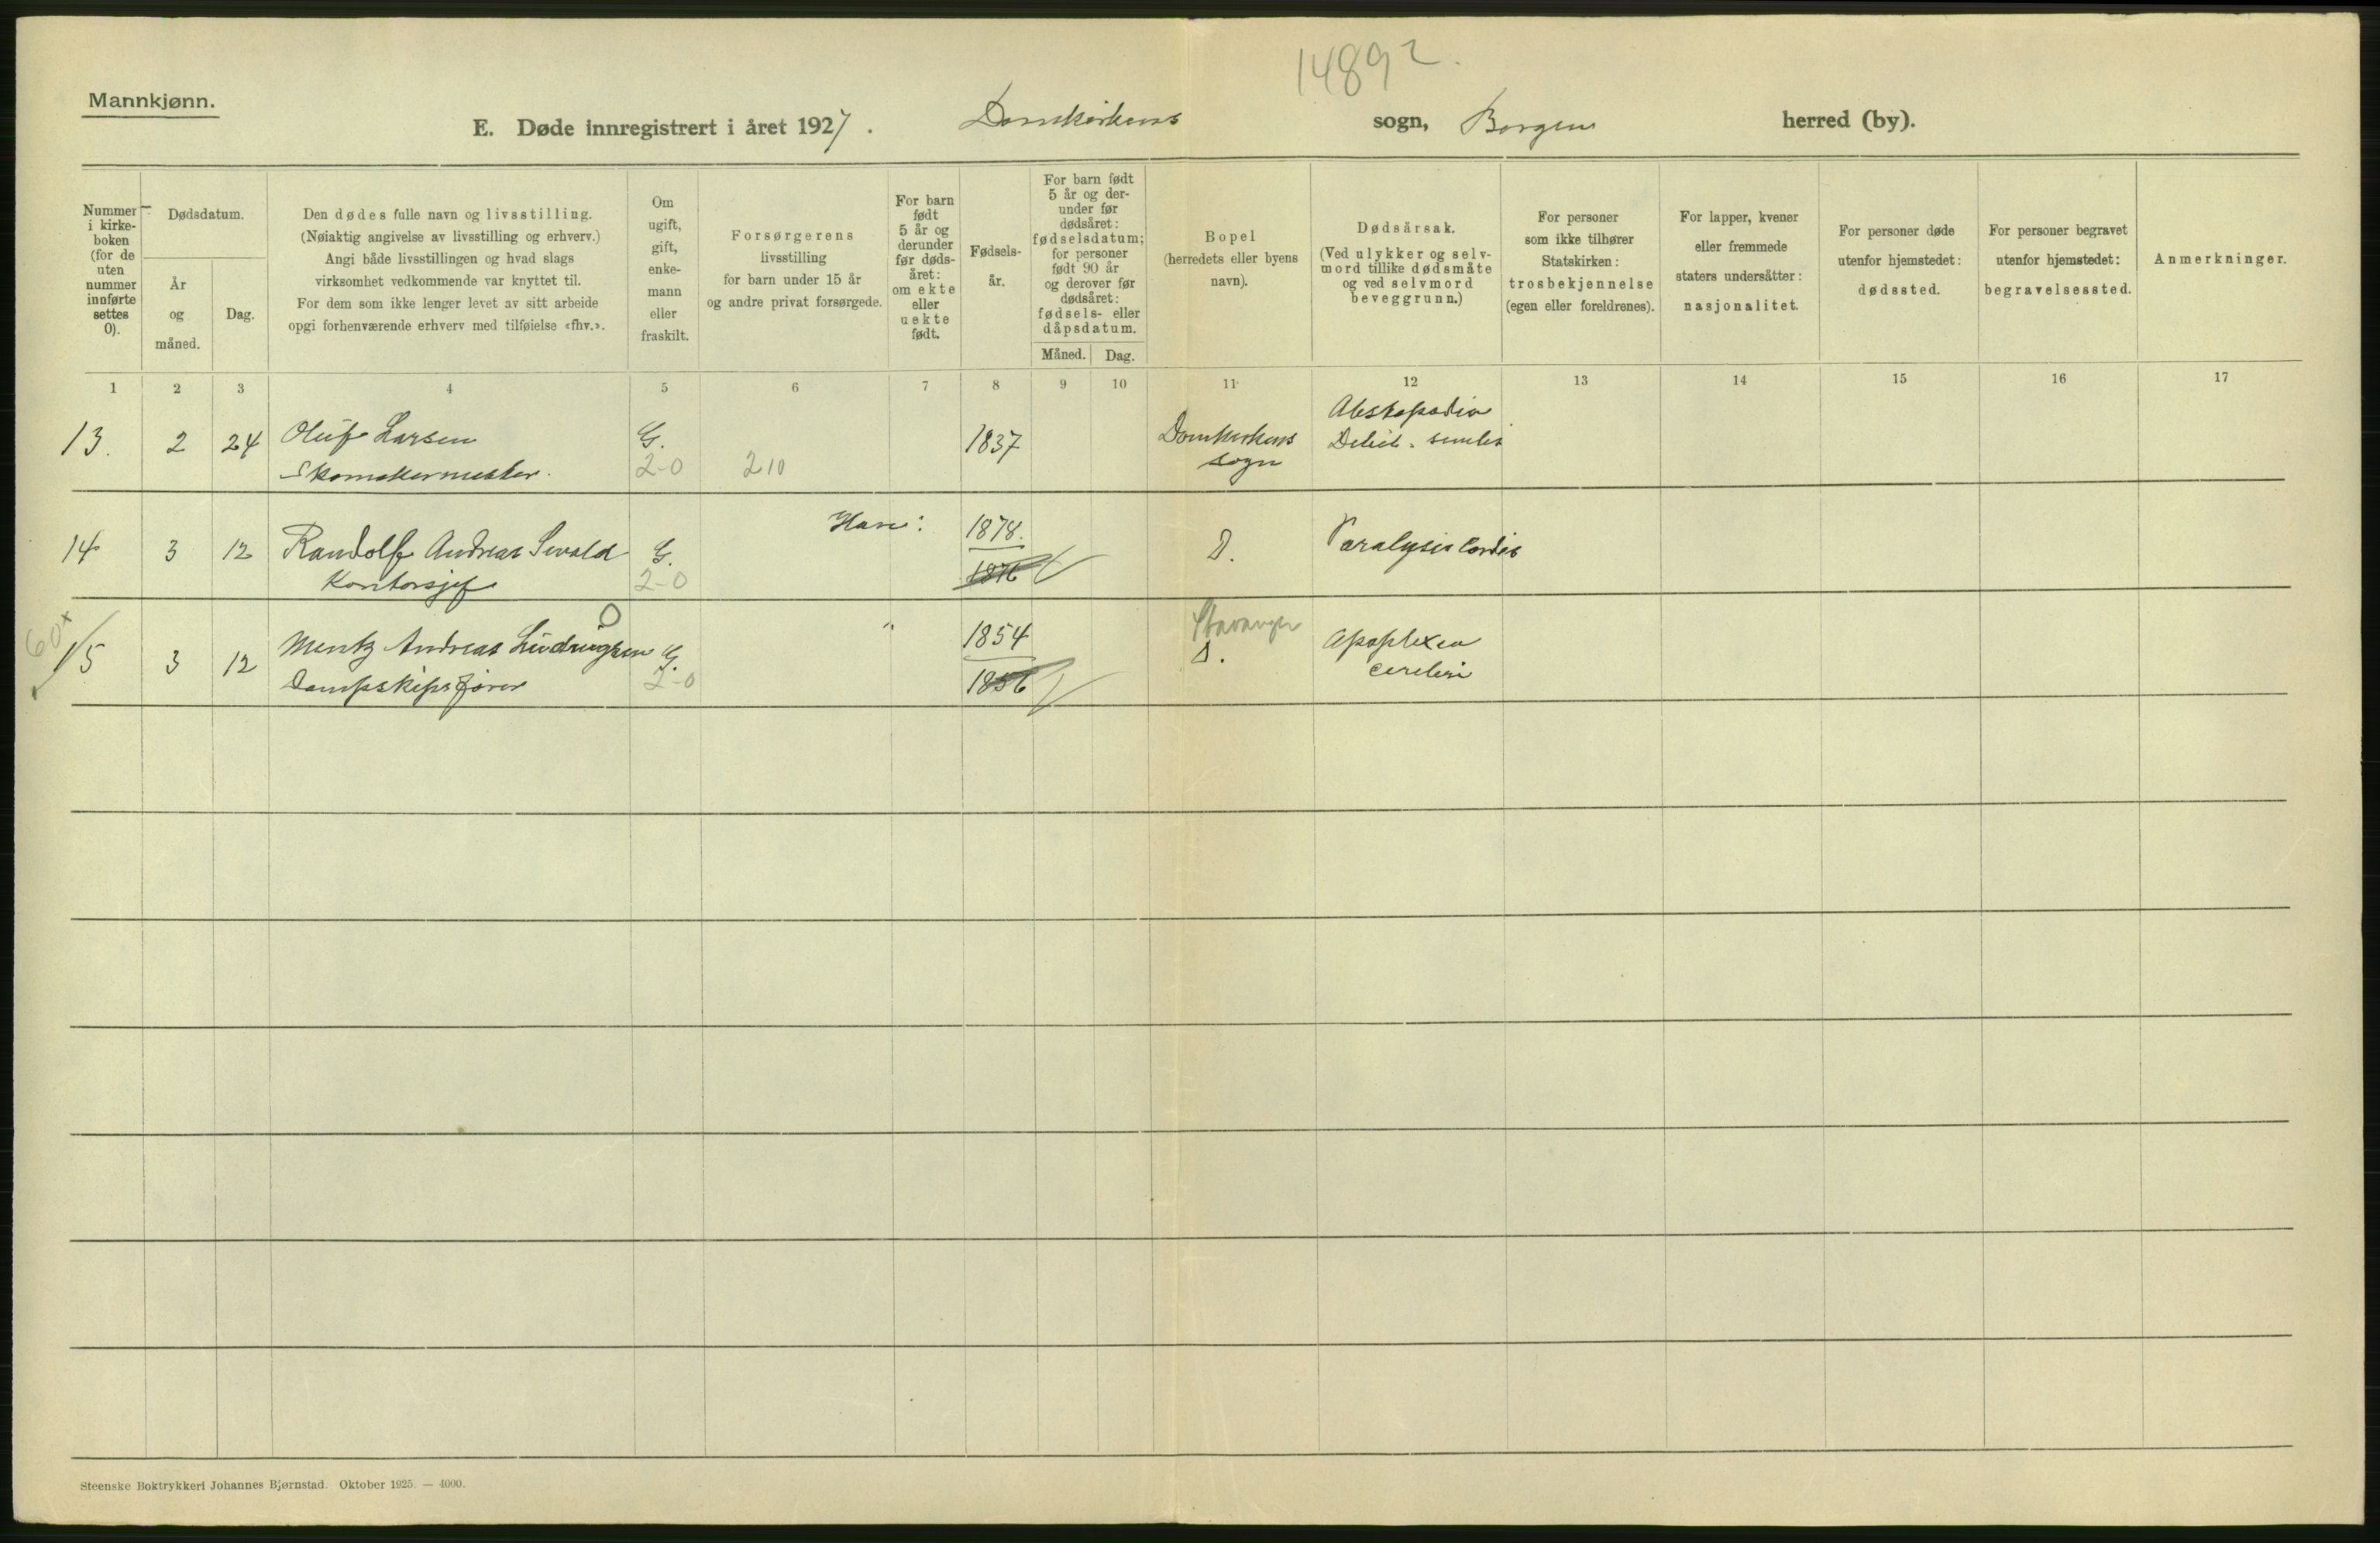 14892.
Mannkjønn.
E. Døde innregistrert i året 1927. Domkirkens sogn, Bergen herred (by).
Nummer i kirke-boken (for de uten nummer innførte settes 0).
Dødsdatum.
År og måned.
Dag.
Den dødes fulle navn og livsstilling.
(Nøiaktig angivelse av livsstilling og erhverv.)
Angi både livsstillingen og hvad slags
virksomhet vedkommende var knyttet til.
For dem som ikke lenger levet av sitt arbeide
opgi forhenværende erhverv med tilføielse «fhv.».
Om ugift, gift, enke-mann eller fraskilt.
Forsørgerens
livsstilling
for barn under 15 år
og andre privat forsørgede.
For barn født 5 år og derunder før døds-året: om ekte eller uekte født.
Fødsels-år.
For barn født 5 år og der-under før dødsåret: fødselsdatum; for personer født 90 år og derover før dødsåret: fødsels- eller dåpsdatum.
Måned. Dag.
Bopel
(herredets eller byens
navn).
Dødsårsak.
(Ved ulykker og selv-
mord tillike dødsmåte
og ved selvmord
beveggrunn.)
For personer
som ikke tilhører
Statskirken:
trosbekjennelse
(egen eller foreldrenes).
For lapper, kvener
eller fremmede
staters undersåtter:
nasjonalitet.
For personer døde
utenfor hjemstedet:
dødssted.
For personer begravet
utenfor hjemstedet:
begravelsessted.
Anmerkninger.
1 2 3 4 5 6 7 8 9 10 11 12 13 14 15 16 17
13. 2 24 Oluf Larsen G. 1837 Domkirkens
Skomakermester. 2-0 210 sogn
Debil. senilis
14 3 12 Randolf Andreas Sevald G. 1878. D. Paralysis cordis
Kontorsjef 2-0 1876
60+
15 3 12 Mentz Andreas Ludvigsen G. " 1854 Stavanger
Dampskipsfører 2-0 1856 D.
Apoplexia
cerebri
Steenske Boktrykkeri Johannes Bjørnstad. Oktober 1925. — 4000.